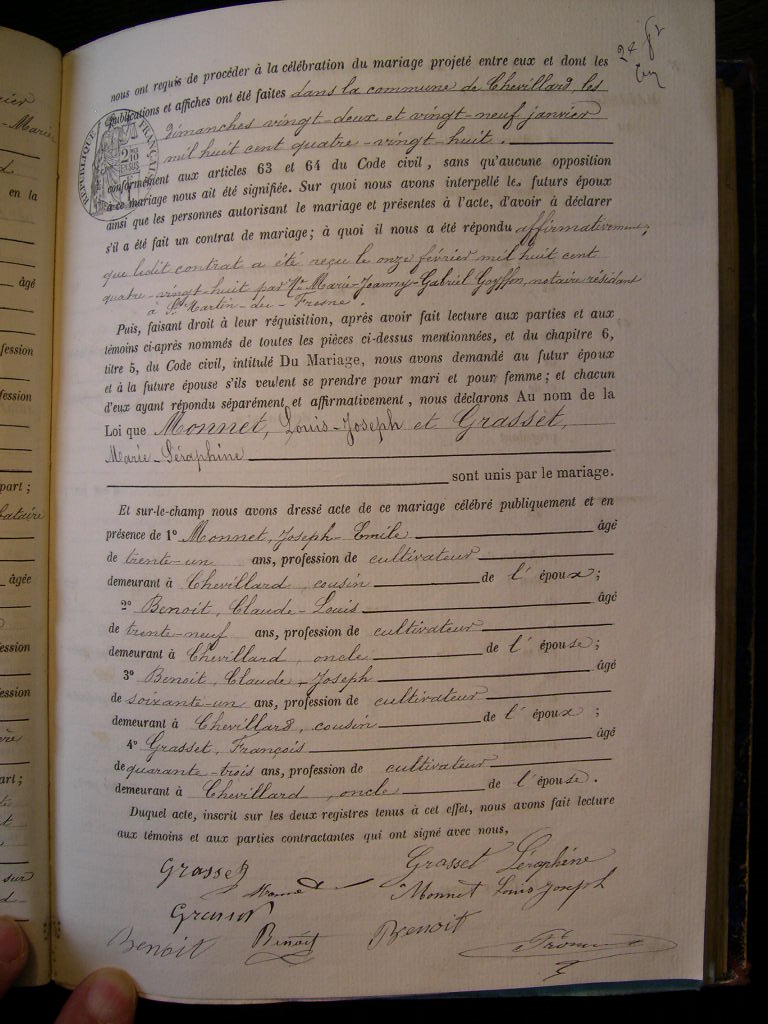 nous ont requis de procéder à la célébration du mariage projeté entre eux et dont les
publications et affiches ont été faites dans la commune de Chevillard, les
dimanches vingt-deux et vingt-neuf janvier
mil huit cent quatre-vingt-huit.
conformément aux articles 63 et 64 du Code civil, sans qu'aucune opposition
à ce mariage nous ait été signifiée. Sur quoi nous avons interpellé les futurs époux
ainsi que les personnes autorisant le mariage et présentes à l'acte, d'avoir à déclarer
s'il a été fait un contrat de mariage; à quoi il nous a été répondu affirmativement,
que ledit contrat a été reçu le onze février mil huit cent
quatre-vingt-huit par Me Marie-Jeanny-Gabriel Goyffon, notaire résidant
à St Martin-du-Fresne.
Puis, faisant droit à leur réquisition, après avoir fait lecture aux parties et aux
témoins ci-après nommés de toutes les pièces ci-dessus mentionnées, et du chapitre 6,
titre 5, du Code civil, intitulé Du Mariage, nous avons demandé au futur époux
et à la future épouse s'ils veulent se prendre pour mari et pour femme; et chacun
d'eux ayant répondu séparément et affirmativement, nous déclarons Au nom de la
Loi que Monnet, Louis-Joseph et Grasset,
Marie-Séraphine
sont unis par le mariage.
Et sur-le-champ nous avons dressé acte de ce mariage célébré publiquement et en
présence de 1° Monnet, Joseph-Emile âgé
de trente-un ans, profession de cultivateur
demeurant à Chevillard, cousin de l'époux;
2° Benoit, Claude-Louis âgé
de trente-neuf ans, profession de cultivateur
demeurant à Chevillard, oncle de l'épouse;
3° Benoit, Claude-Joseph âgé
de soixante-un ans, profession de cultivateur
demeurant à Chevillard, cousin de l'époux;
4° Grasset, François âgé
de quarante-trois ans, profession de cultivateur
demeurant à Chevillard, oncle de l'épouse.
Duquel acte, inscrit sur les deux registres tenus à cet effet, nous avons fait lecture
aux témoins et aux parties contractantes qui ont signé avec nous,
Grasset Grasset Séraphine
Monnet Monnet Louis Joseph
Benoit Benoit Benoit
RÉPUBLIQUE FRANÇAISE